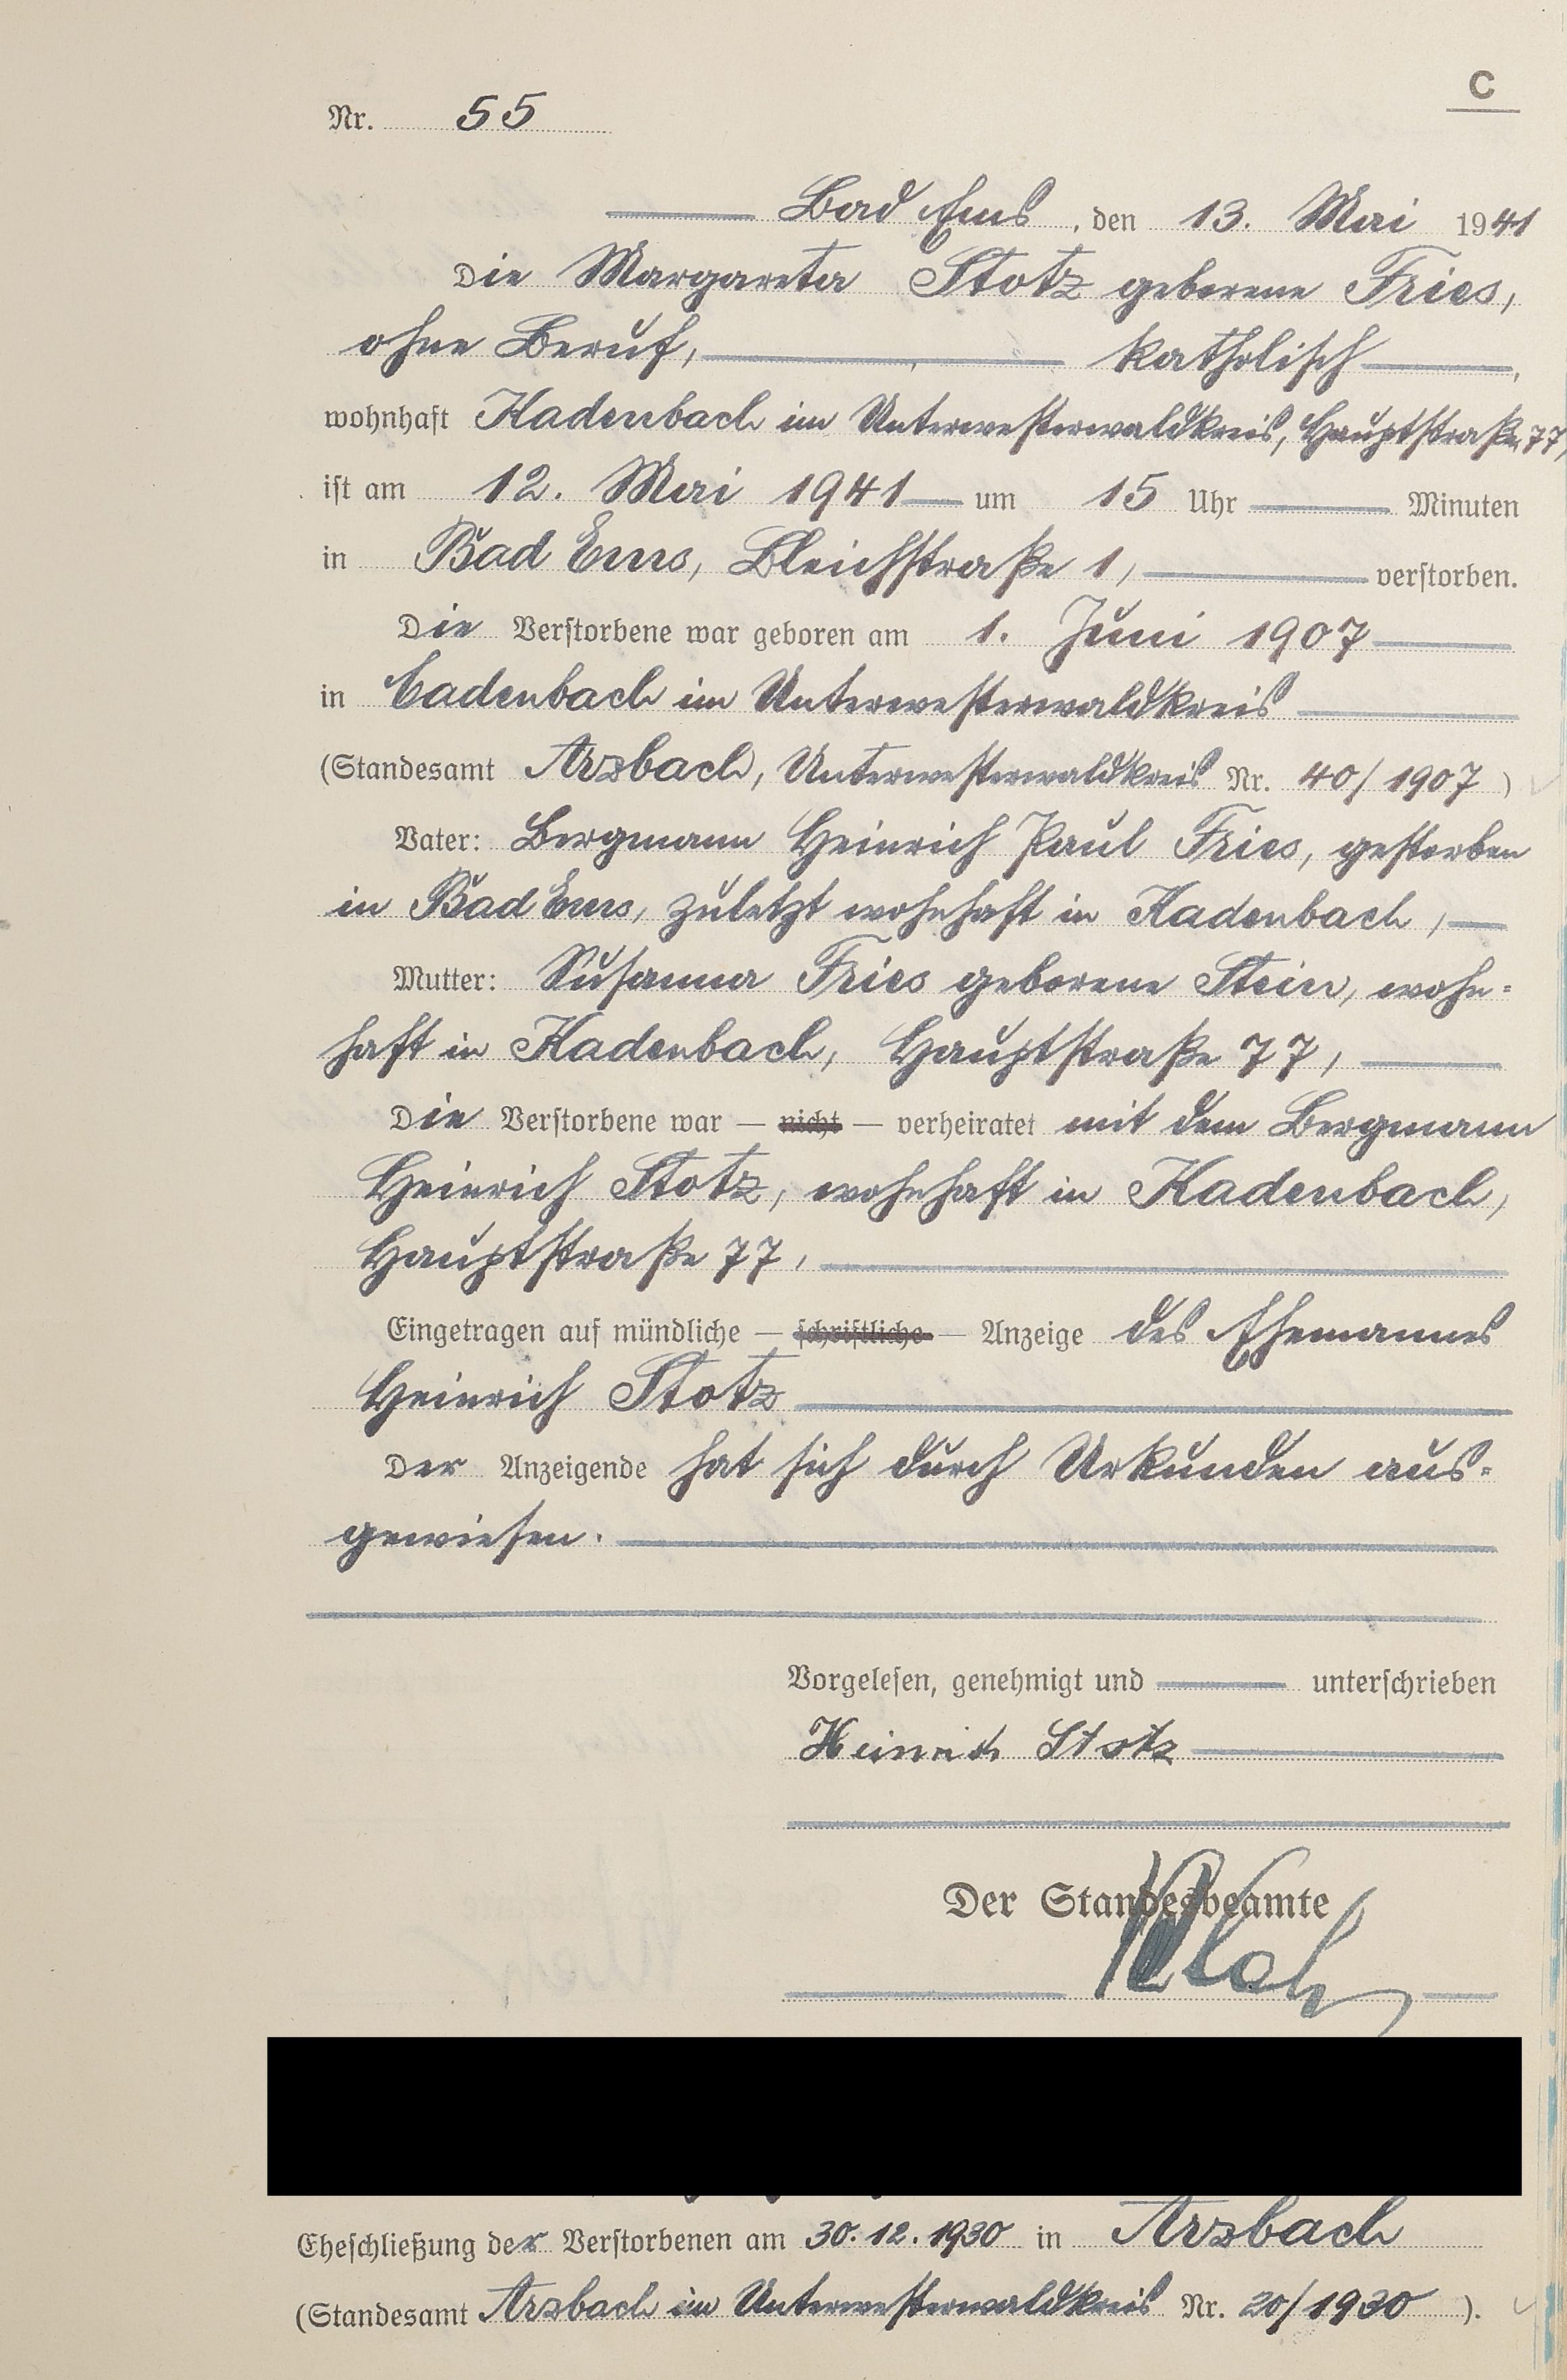 C
Nr. 55
Bad Ems, den 13. Mai 1941
Die Margareta Stotz geborene Fries,
ohne Beruf, katholisch,
wohnhaft Kadenbach im Unterwesterwaldkreis, Hauptstraße 77,
ist am 12. Mai 1941 um 15 Uhr Minuten
in Bad Ems, Bleichstraße 1, verstorben.
Die Verstorbene war geboren am 1. Juni 1907
in Cadenbach im Unterwesterwaldkreis
(Standesamt Arzbach, Unterwesterwaldkreis Nr. 40/1907)
Vater: Bergmann Heinrich Paul Fries, gestorben
in Bad Ems, zuletzt wohnhaft in Kadenbach,
Mutter: Susanna Fries geborene Stein, wohn-
haft in Kadenbach, Hauptstraße 77,
Die Verstorbene war — nicht — verheiratet mit dem Bergmann
Heinrich Stotz, wohnhaft in Kadenbach,
Hauptstraße 77,
Eingetragen auf mündliche — schriftliche — Anzeige des Ehemannes
Heinrich Stotz
Der Anzeigende hat sich durch Urkunden aus-
gewiesen.
Vorgelesen, genehmigt und unterschrieben
Heinrich Stotz
Der Standesbeamte
Eheschließung der Verstorbenen am 30.12.1930 in Arzbach
(Standesamt Arzbach im Unterwesterwaldkreis Nr. 20/1930).